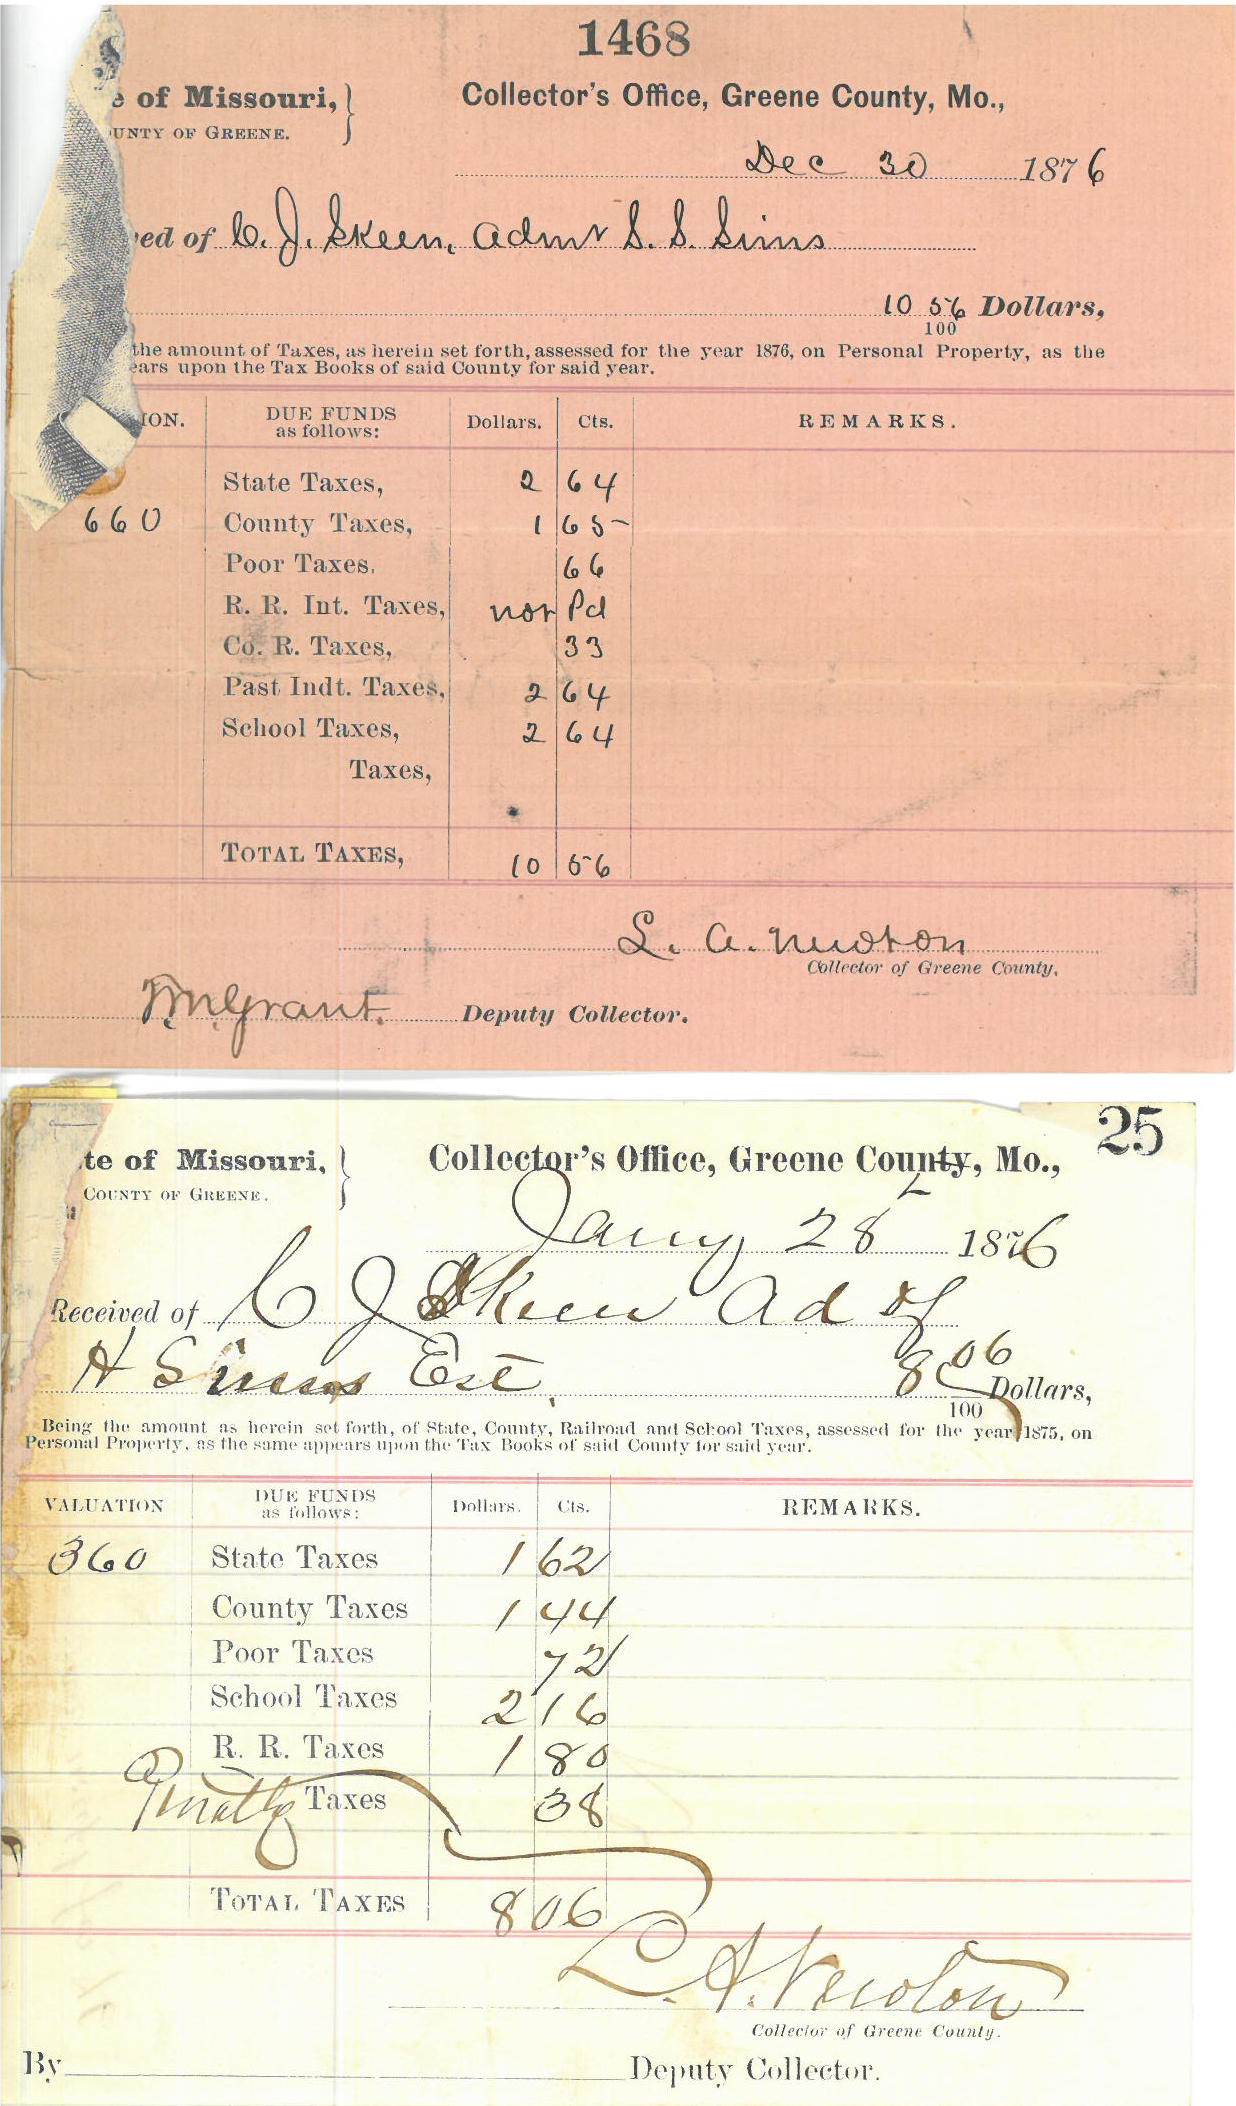 1468
e of Missouri, }
UNTY OF GREENE.
Collector's Office, Greene County, Mo.,
Dec 30 1876
ved of C. J. Skeen, Admr S. S. Sims
10 56/100 Dollars,
the amount of Taxes, as herein set forth, assessed for the year 1876, on Personal Property, as the
ears upon the Tax Books of said County for said year.
ION. DUE FUNDS as follows: Dollars. Cts. REMARKS.
State Taxes, 2 64
660 County Taxes, 1 65
Poor Taxes. 66
R. R. Int. Taxes, not Pd
Co. R. Taxes, 33
Past Indt. Taxes, 2 64
School Taxes, 2 64
Taxes,
TOTAL TAXES, 10 56
L. A. Newton
Collector of Greene County.
Grant. Deputy Collector.
25
te of Missouri, }
COUNTY OF GREENE.
Collector's Office, Greene County, Mo.,
Jany 28 1876
Received of C J Skeen Ad of
H Simms Est. 8 06/100 Dollars,
Being the amount as herein set forth, of State, County, Railroad and School Taxes, assessed for the year 1875, on
Personal Property, as the same appears upon the Tax Books of said County for said year.
VALUATION DUE FUNDS as follows: Dollars. Cts. REMARKS.
360 State Taxes 1 62
County Taxes 1 44
Poor Taxes 72
School Taxes 2 16
R. R. Taxes 1 80
Penalty Taxes 38
TOTAL TAXES 8 06
L. A. Newton
Collector of Greene County.
By Deputy Collector.